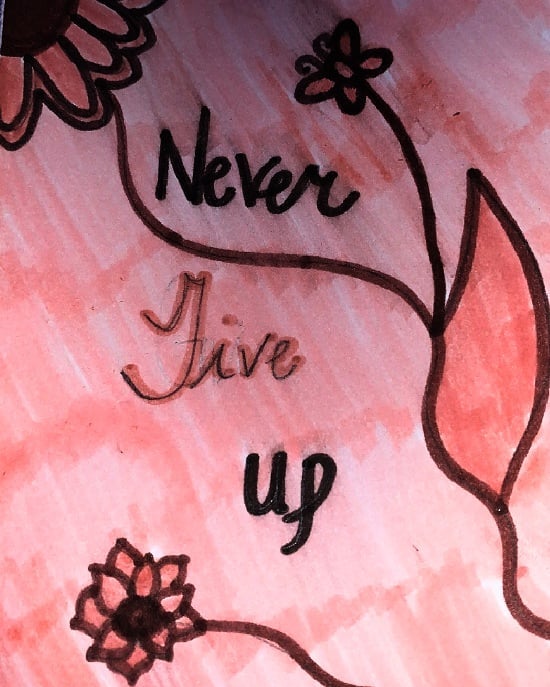 Never
Give
up